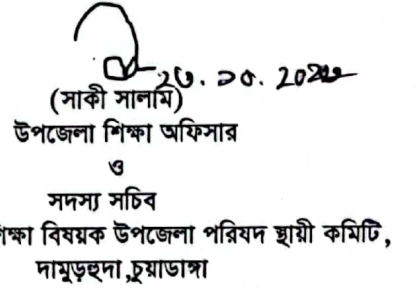 (সাকী সালাম)
উপজেলা শিক্ষা অফিসার
ও
সদস্য সচিব
শিক্ষা বিষয়ক উপজেলা পরিষদ স্থায়ী কমিটি,
দামুড়হুদা ,চুয়াডাঙ্গা